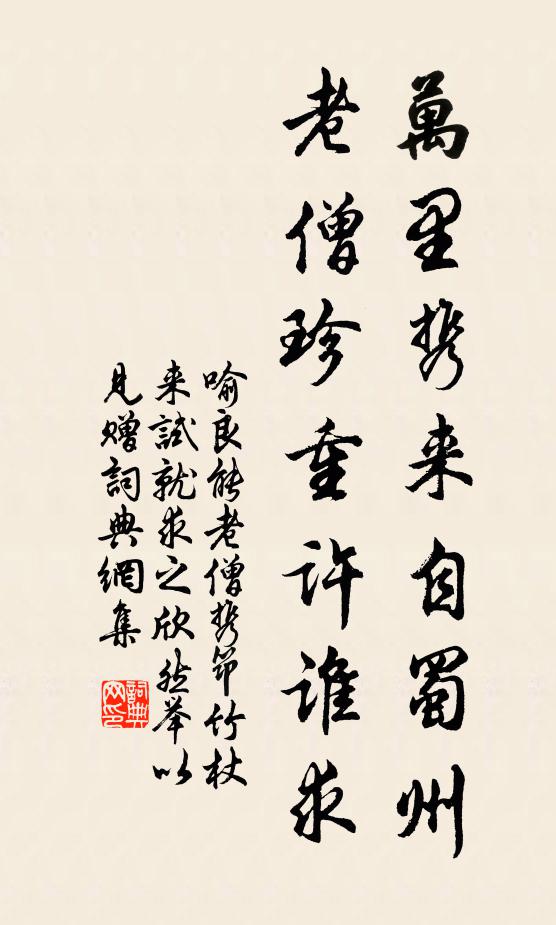 萬里携来自蜀州
老僧珍重許誰求
喻良能老僧携笻竹杖
来試就求之欣然举以
見贈詞典網集
詞典网印